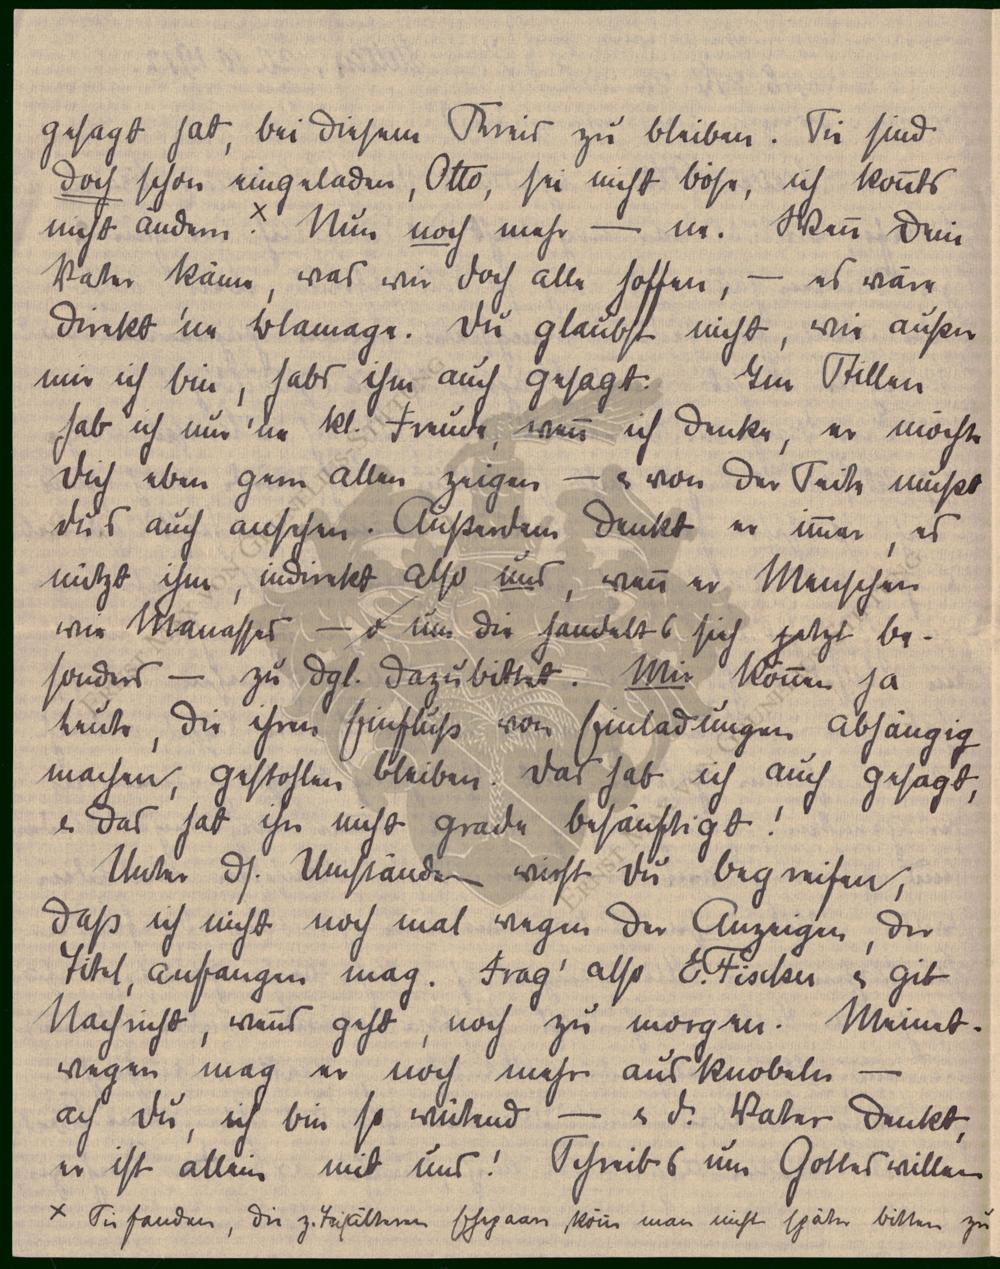 gesagt hat, bei diesem Kreis zu bleiben. Sie sind
doch schon eingeladen, Otto, sei nicht böse, ich konnts
nicht ändern.x Nun noch mehr — ne. Wenn Dein
Vater käme, was wir doch alle hoffen, — es wäre
direkt 'ne Blamage. Du glaubst nicht, wie außer
mir ich bin, habs ihm auch gesagt. Im Stillen
hab ich nur 'ne kl. Freude, wenn ich denke, er möchte
Dich eben gern allen zeigen — & von der Seite mußt
du's auch ansehen. Außerdem denkt er immer, es
nützt ihm, indirekt also uns, wenn er Menschen
wie Manasses — & um die handelts sich jetzt be-
sonders — zu dgl. dazubittet. Mir können ja
Leute, die ihren Einfluß von Einladungen abhängig
machen, gestohlen bleiben. Das hab ich auch gesagt,
& das hat ihn nicht grade besänftigt!
Unter ds. Umständen wirst Du begreifen,
daß ich nicht noch mal wegen der Anzeigen, der
Titel, anfangen mag. Frag' also E. Fischer & gib
Nachricht, wenns geht, noch zu morgen. Meinet-
wegen mag er noch mehr ausknobeln —
ach Du, ich bin so wütend — & d. Vater denkt,
er ist allein mit uns! Schreibs um Gotteswillen
x Sie fanden, die älteren Ehepaare könn man nicht später bitten zu